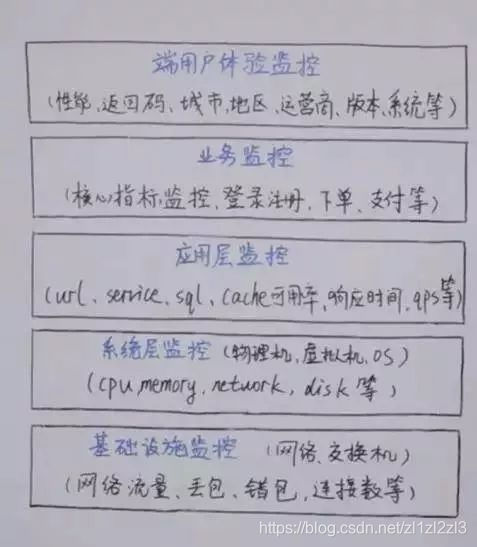 端用户体验监控
(性能、返回码、城市、地区、运营商、版本、系统等)
业务监控
(核心指标监控、登录注册、下单、支付等)
应用层监控
(url、service、sql、cache可用率、响应时间、qps等)
系统层监控 (物理机、虚拟机、OS)
(cpu、memory、network、disk等)
基础设施监控 (网络、交换机)
(网络流量、丢包、错包、连接数等)
https://blog.csdn.net/zl1zl2zl3